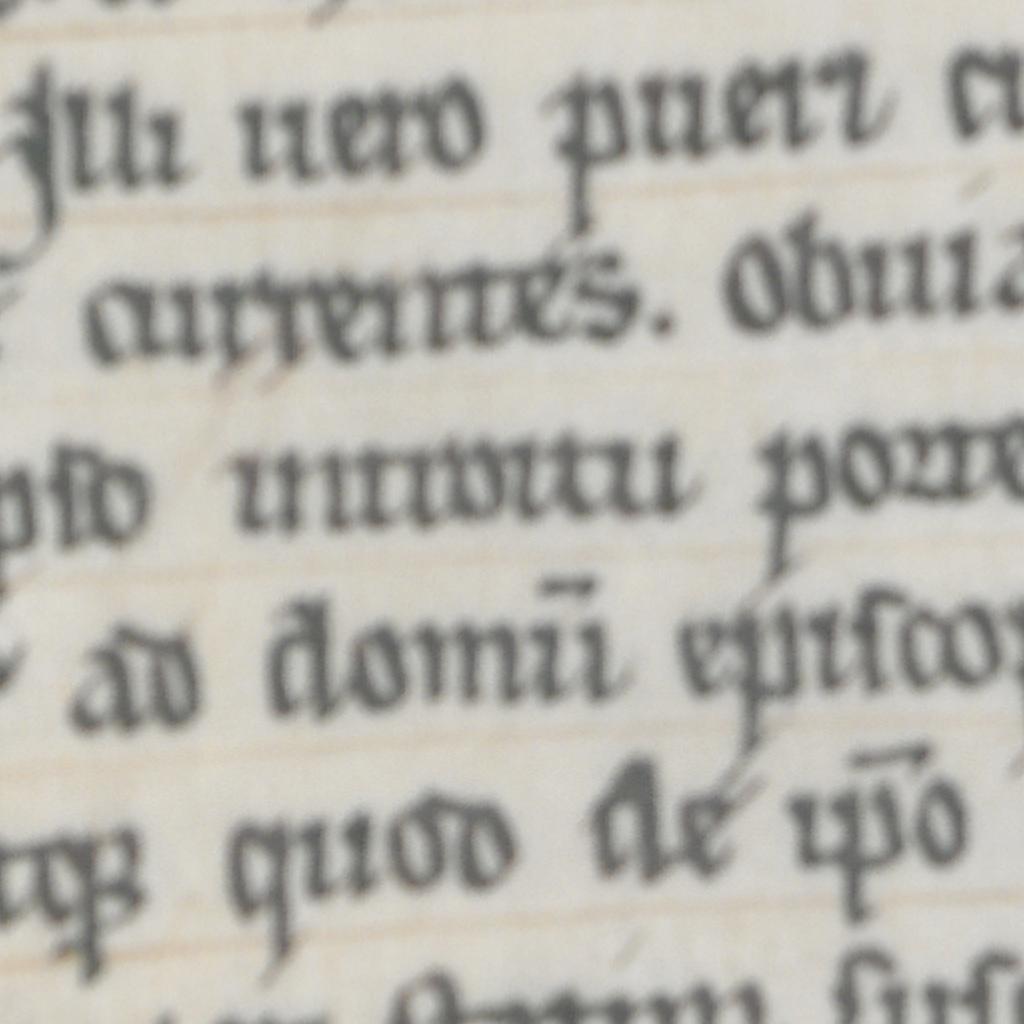 Illi uero pueri cu
currentes. obuia
pso introitu porre
ad domū episcop
tqꝫ quod de ip̄o